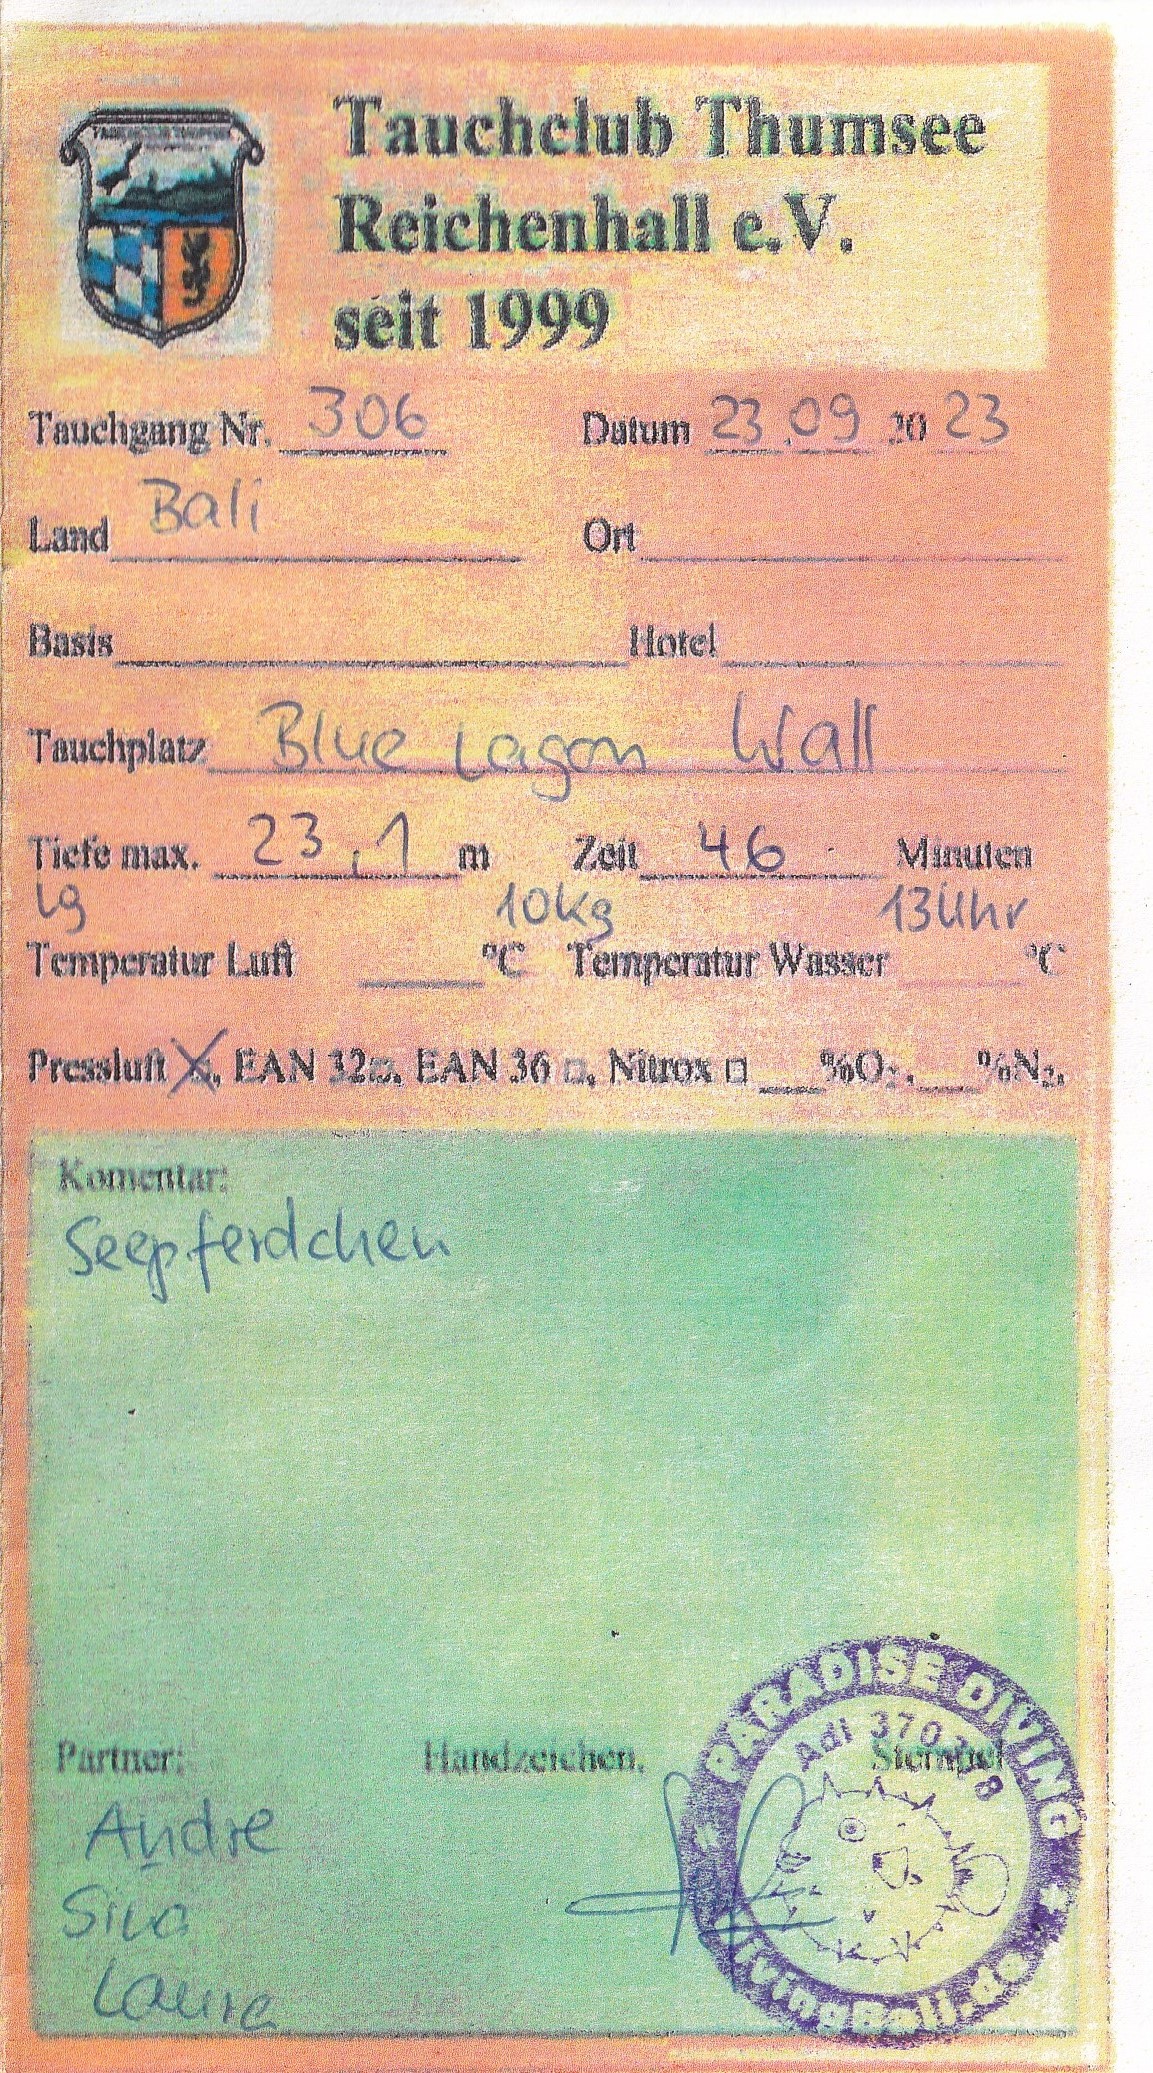 Tauchclub Thumsee
Reichenhall e.V.
seit 1999
Tauchgang Nr. 306 Datum 23.09 20 23
Land Bali Ort
Basis Hotel
Tauchplatz Blue Lagon Wall
Tiefe max. 23,1 m Zeit 46 Minuten
lg 10kg 13Uhr
Temperatur Luft °C Temperatur Wasser °C
Pressluft X, EAN 32□, EAN 36 □, Nitrox □ ___%O₂, ___%N₂,
Komentar:
Seepferdchen
PARADISE DIVING
Adi
Partner: Handzeichen. Stempel
Andre
Laura